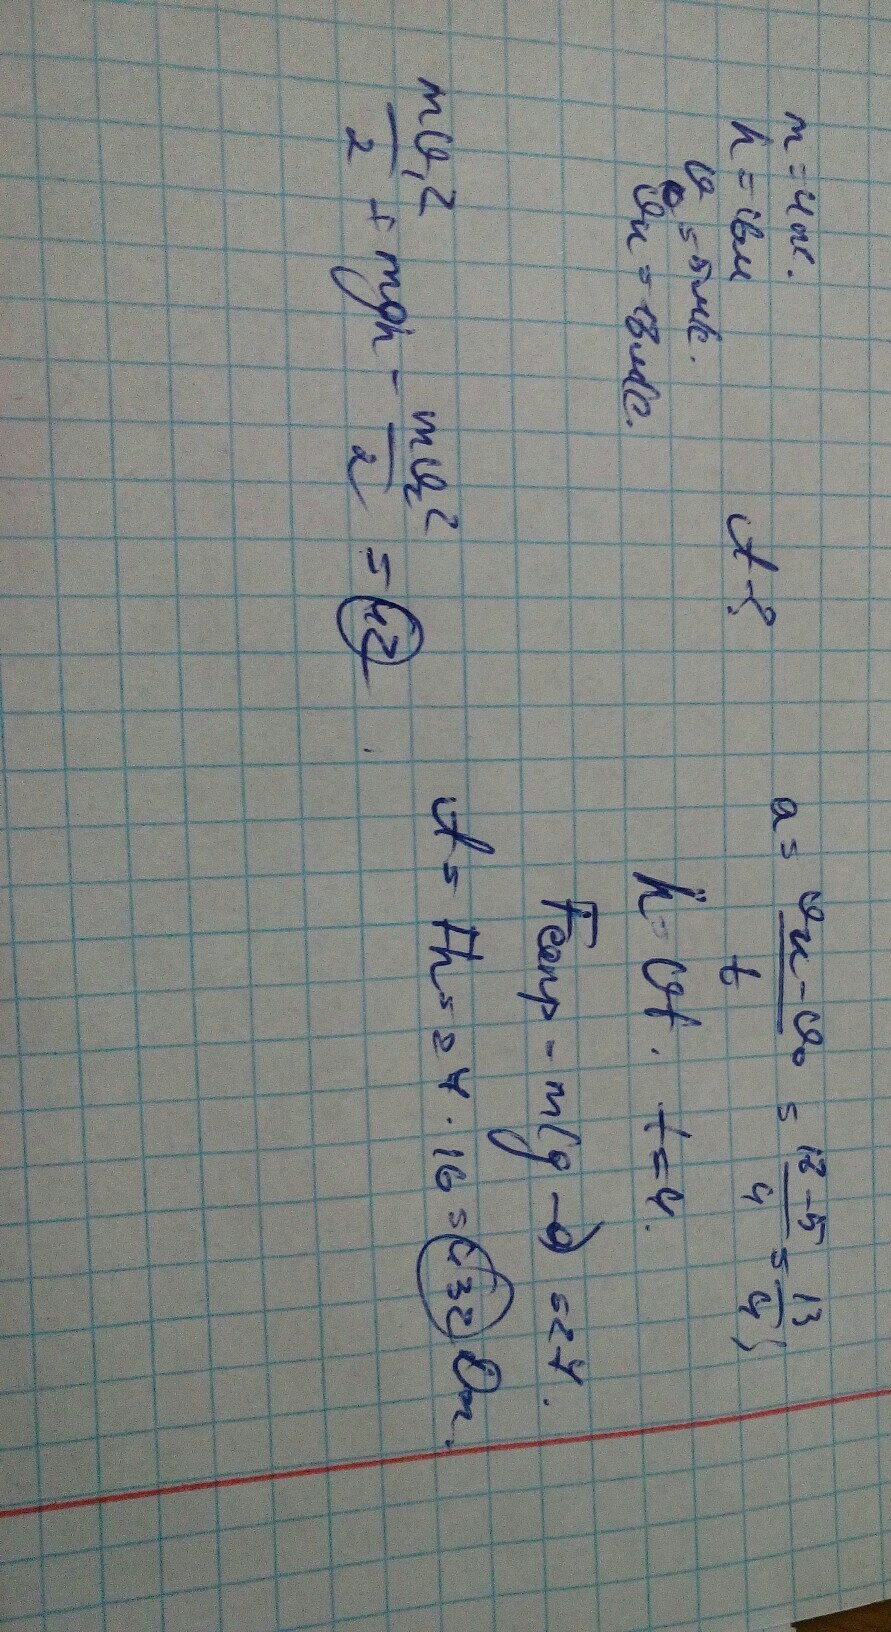 m = 4 кг.
h = 16м
υ₀ = 5 м/с.
υк = 18 м/с.
A - ?
a = (υк - υ₀)/t = (18 - 5)/4 = 13/4;
h = υt. t = 4.
Fсопр = m(g - a) = 27.
A = Fh = 27 · 16 = 432 Дж.
mυ₁²/2 + mgh - mυ₂²/2 =